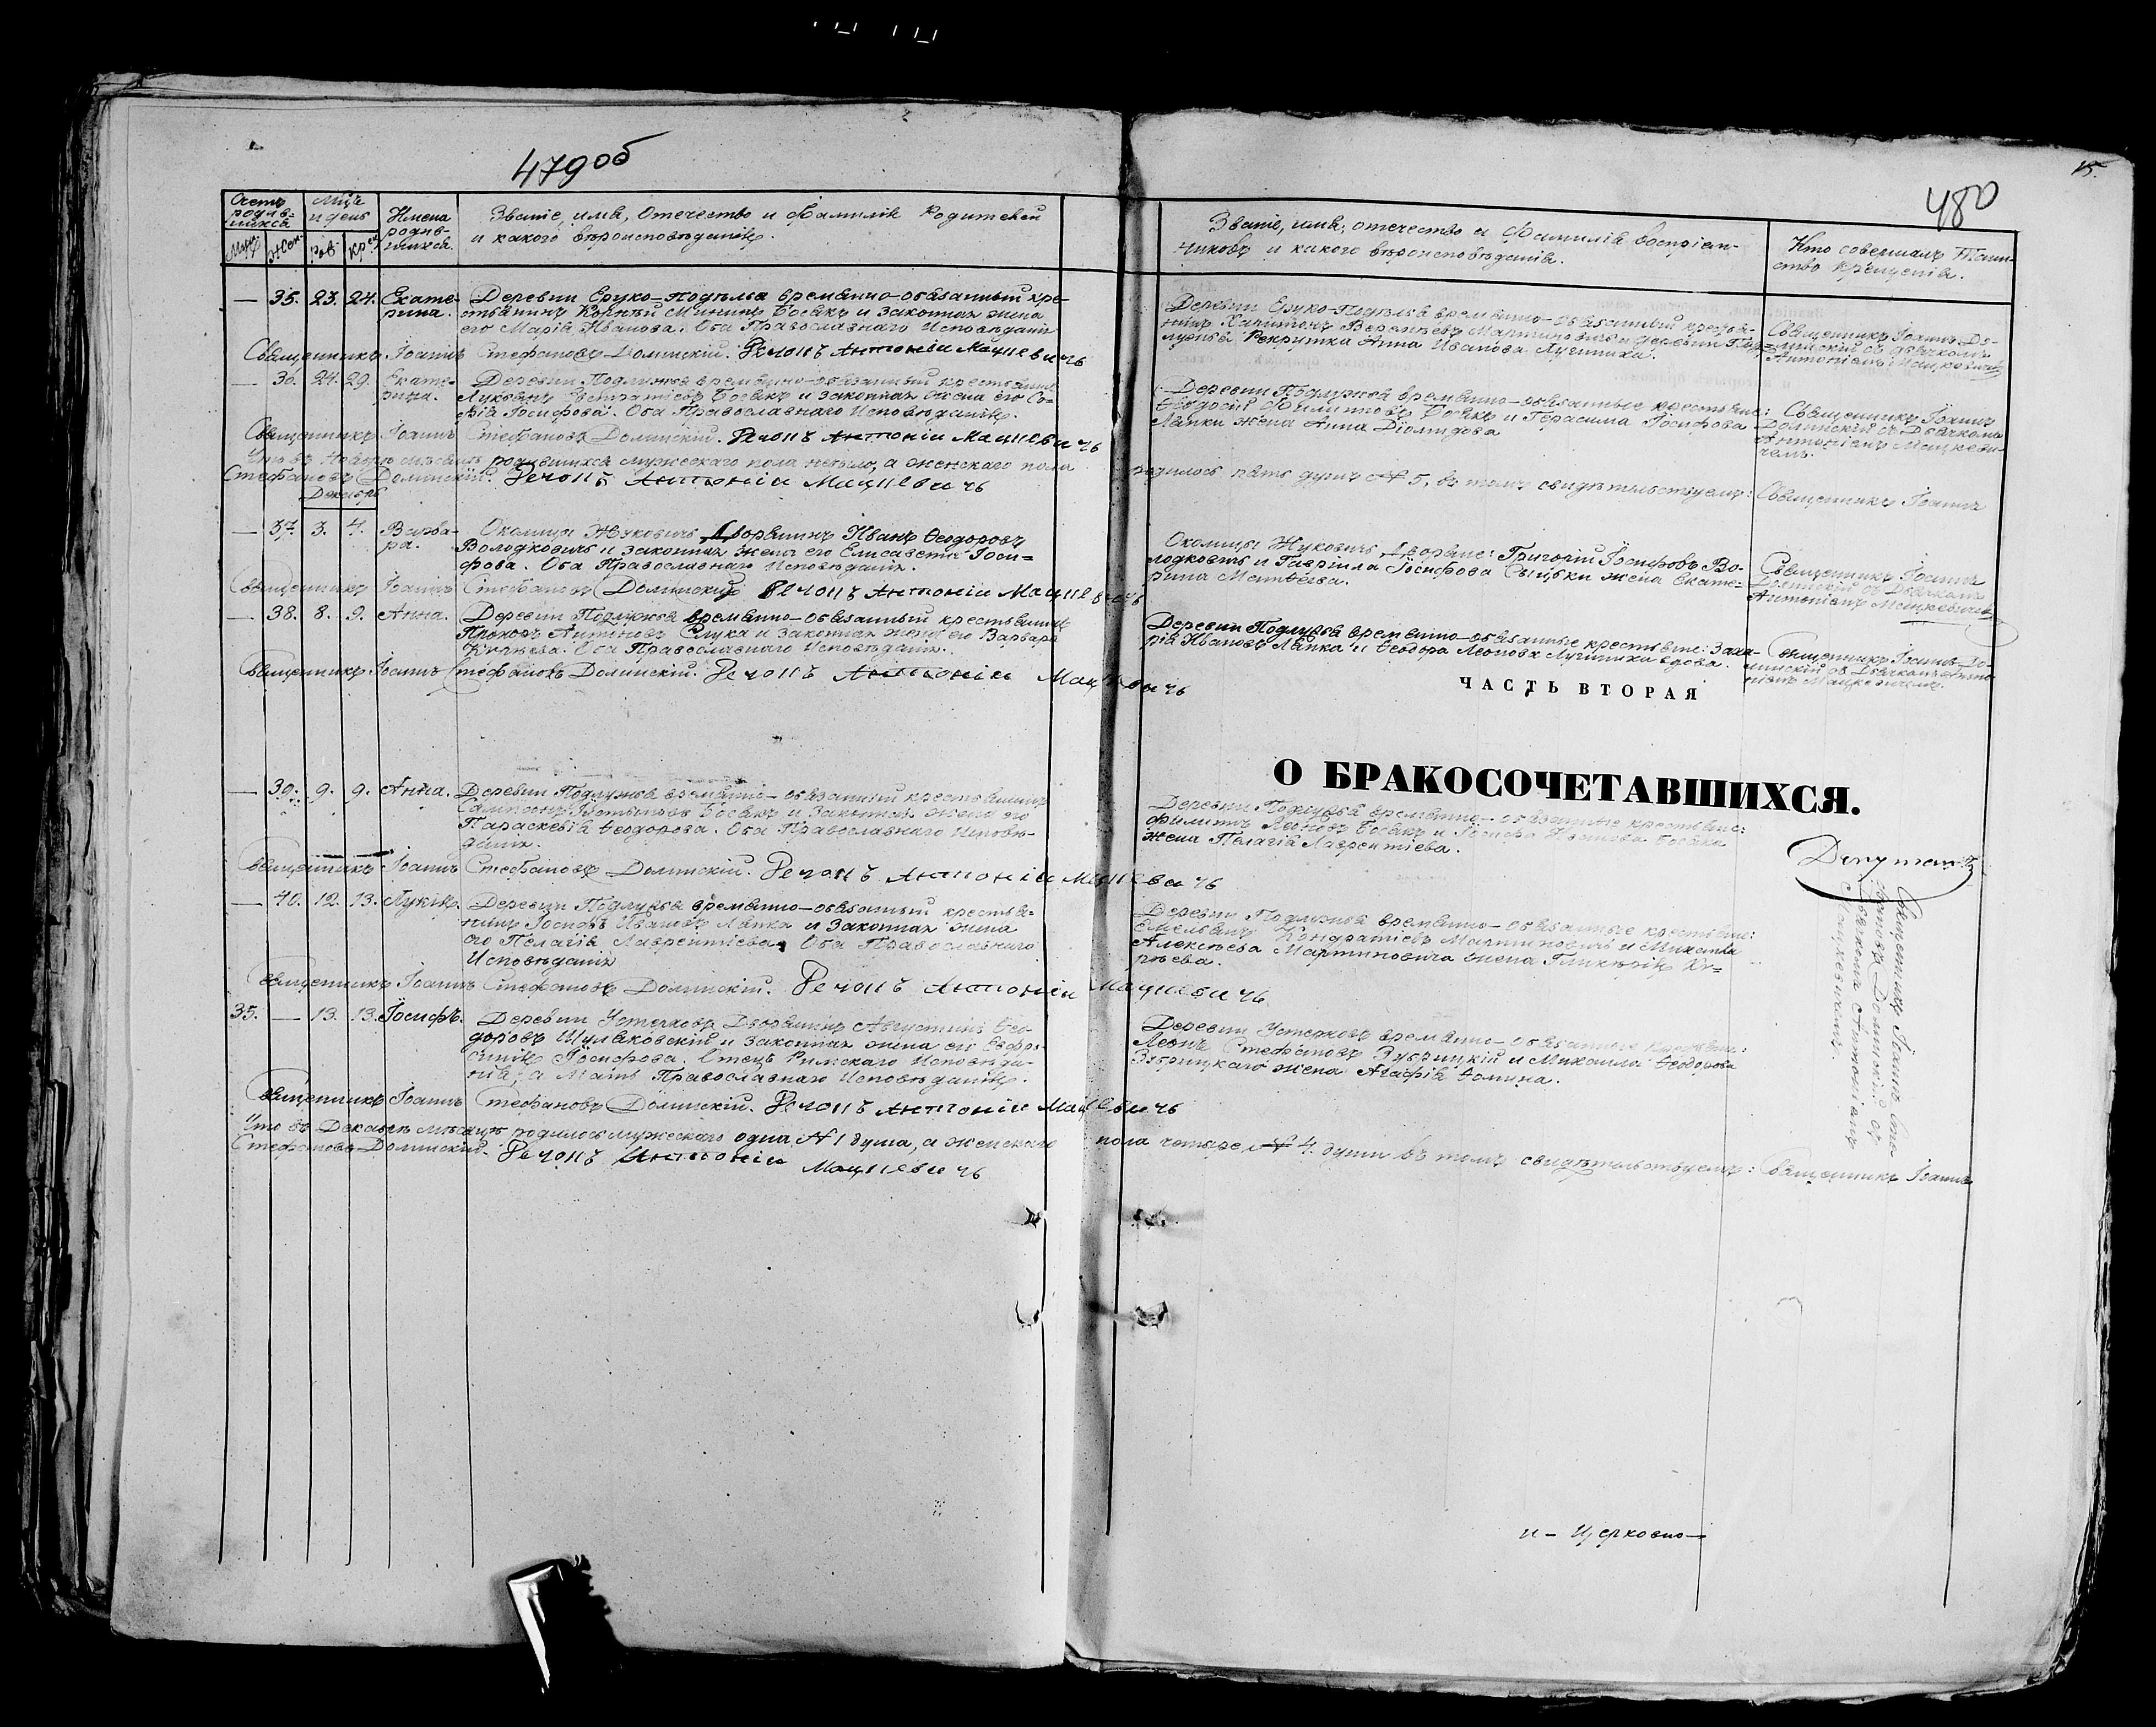 479 об
480
15.
Счетъ родив-шихся
Мцъ и день
Имена родив-шихся.
Званіе, имя, отечество и Фамилія Родителей
и какого вѣроисповѣданія.
Муж. Жен. Рож. Крещ.
Званіе, имя, отечество и Фамилія воспріем-
никовъ и какого вѣроисповѣданія.
Кто совершалъ Таин-
ство крещенія.
— 35. 23. 24. Екате- Деревни Еруко-Подѣлья временно-обязанный кре-
рина. стьянинъ Корнѣй Мининъ Босякъ и законная жена
его Марія Иванова. Оба Православнаго Исповѣданія
Деревни Еруко-Подѣлья временно-обязанный крестья-
нинъ Харитонъ Мартиновичъ и деревни Под-
лужья Рекрутка Анна Иванова Лучинка.
Священникъ Іоаннъ До-
линскій съ дьячкомъ
Антоніемъ Мацкевичемъ
Священникъ Іоаннъ Стефановъ Долинскій. Дьячокъ Антоній Мацкевичъ
— 36. 24. 29. Екате- Деревни Подлужья временно-обязанный крестьянинъ
рина. Лукьянъ Босякъ и законная жена его Со-
фія Іосифова. Оба Православнаго Исповѣданія.
Деревни Подлужья временно-обязанные крестьяне:
Ѳеодосій Филиповъ Босякъ и Герасима Іосифова
Лапки жена Анна Діомидова
Священникъ Іоаннъ
Долинскій съ Дьячкомъ
Антоніемъ Мацкеви-
чемъ.
Священникъ Іоаннъ Стефановъ Долинскій. Дьячокъ Антоній Мацкевичъ
Что въ Ноябрѣ мѣсяцѣ родившихся мужескаго пола небыло, а женскаго пола родилось пять душъ № 5, въ томъ свидѣтельствуемъ: Священникъ Іоаннъ
Стефановъ Долинскій. Дьячокъ Антоній Мацкевичъ
Декабрь
— 37. 3. 4. Варва- Околицы Жуковичъ Дворянинъ Иванъ Ѳеодоровъ
ра. Володковичъ и законная жена его Елисавета Іоси-
фова. Оба Православнаго Исповѣданія.
Околицы Жуковичъ Дворяне: Григорій Іосифовъ Во-
лодковичъ и Гавріила Іосифова Сыцьки жена Екате-
рина Матвѣева.
Священникъ Іоаннъ
Долинскій съ Дьячкомъ
Антоніемъ Мацкевичемъ
Священникъ Іоаннъ Стефановъ Долинскій Дьячокъ Антоній Мацкевичъ
— 38. 8. 9. Анна. Деревни Подлужья временно-обязанный крестьянинъ
Прокопъ Антоновъ Слука и законная жена его Варвара
Оба Православнаго Исповѣданія.
Деревни Подлужья временно-обязанные крестьяне: Заха-
рія Ивановъ Лапка и Ѳеодора Леонова Лучинка вдова.
Священникъ Іоаннъ До-
линскій съ Дьячкомъ Анто-
ніемъ Мацкевичемъ.
Священникъ Іоаннъ Стефановъ Долинскій. Дьячокъ Антоній Мацкевичъ
ЧАСТЬ ВТОРАЯ
О БРАКОСОЧЕТАВШИХСЯ.
— 39. 9. 9. Анна. Деревни Подлужья временно-обязанный крестьянинъ
Сампсонъ Босякъ и законная жена его
Параскевія Ѳеодорова. Оба Православнаго Исповѣ-
данія.
Деревни Подлужья временно-обязанные крестьяне:
Филипъ Леоновъ Босякъ и Іосифа Иванова Босяка
жена Пелагія Лаврентіева.
Документъ
Священникъ Іоаннъ Стефановъ Долинскій. Дьячокъ Антоній Мацкевичъ
— 40. 12. 13. Лукія. Деревни Подлужья временно-обязанный крестья-
нинъ Іосифъ Ивановъ Лапка и законная жена
его Пелагія Лаврентіева. Оба Православнаго
Исповѣданія
Деревни Подлужья временно-обязанные крестьяне:
Емельянъ Кондратіевъ Мартиновичъ и Михаила
Алексѣева Мартиновича жена Гликерія
Священникъ Іоаннъ
Долинскій съ
Дьячкомъ Антоніемъ
Мацкевичемъ.
Священникъ Іоаннъ Стефановъ Долинскій. Дьячокъ Антоній Мацкевичъ
35. — 13. 13. Іосифъ. Деревни Устерховъ Дворянинъ Августинъ Ѳео-
доровъ Шуляковскій и законная жена его Евфро-
синія Іосифова. Отецъ Римскаго Исповѣда-
нія, а Мать Православнаго Исповѣданія.
Деревни Устерховъ временно-обязанные крестьяне:
Леонъ Стефановъ Зубрицкій и Михаила Ѳеодорова
Зубрицкаго жена Агафія Ѳомина.
Священникъ Іоаннъ Стефановъ Долинскій. Дьячокъ Антоній Мацкевичъ
Что въ Декабрѣ мѣсяцѣ родилось мужескаго одна № 1 душа, а женскаго пола четыре № 4. души въ томъ свидѣтельствуемъ: Священникъ Іоаннъ
Стефановъ Долинскій. Дьячокъ Антоній Мацкевичъ
и – Церковно –